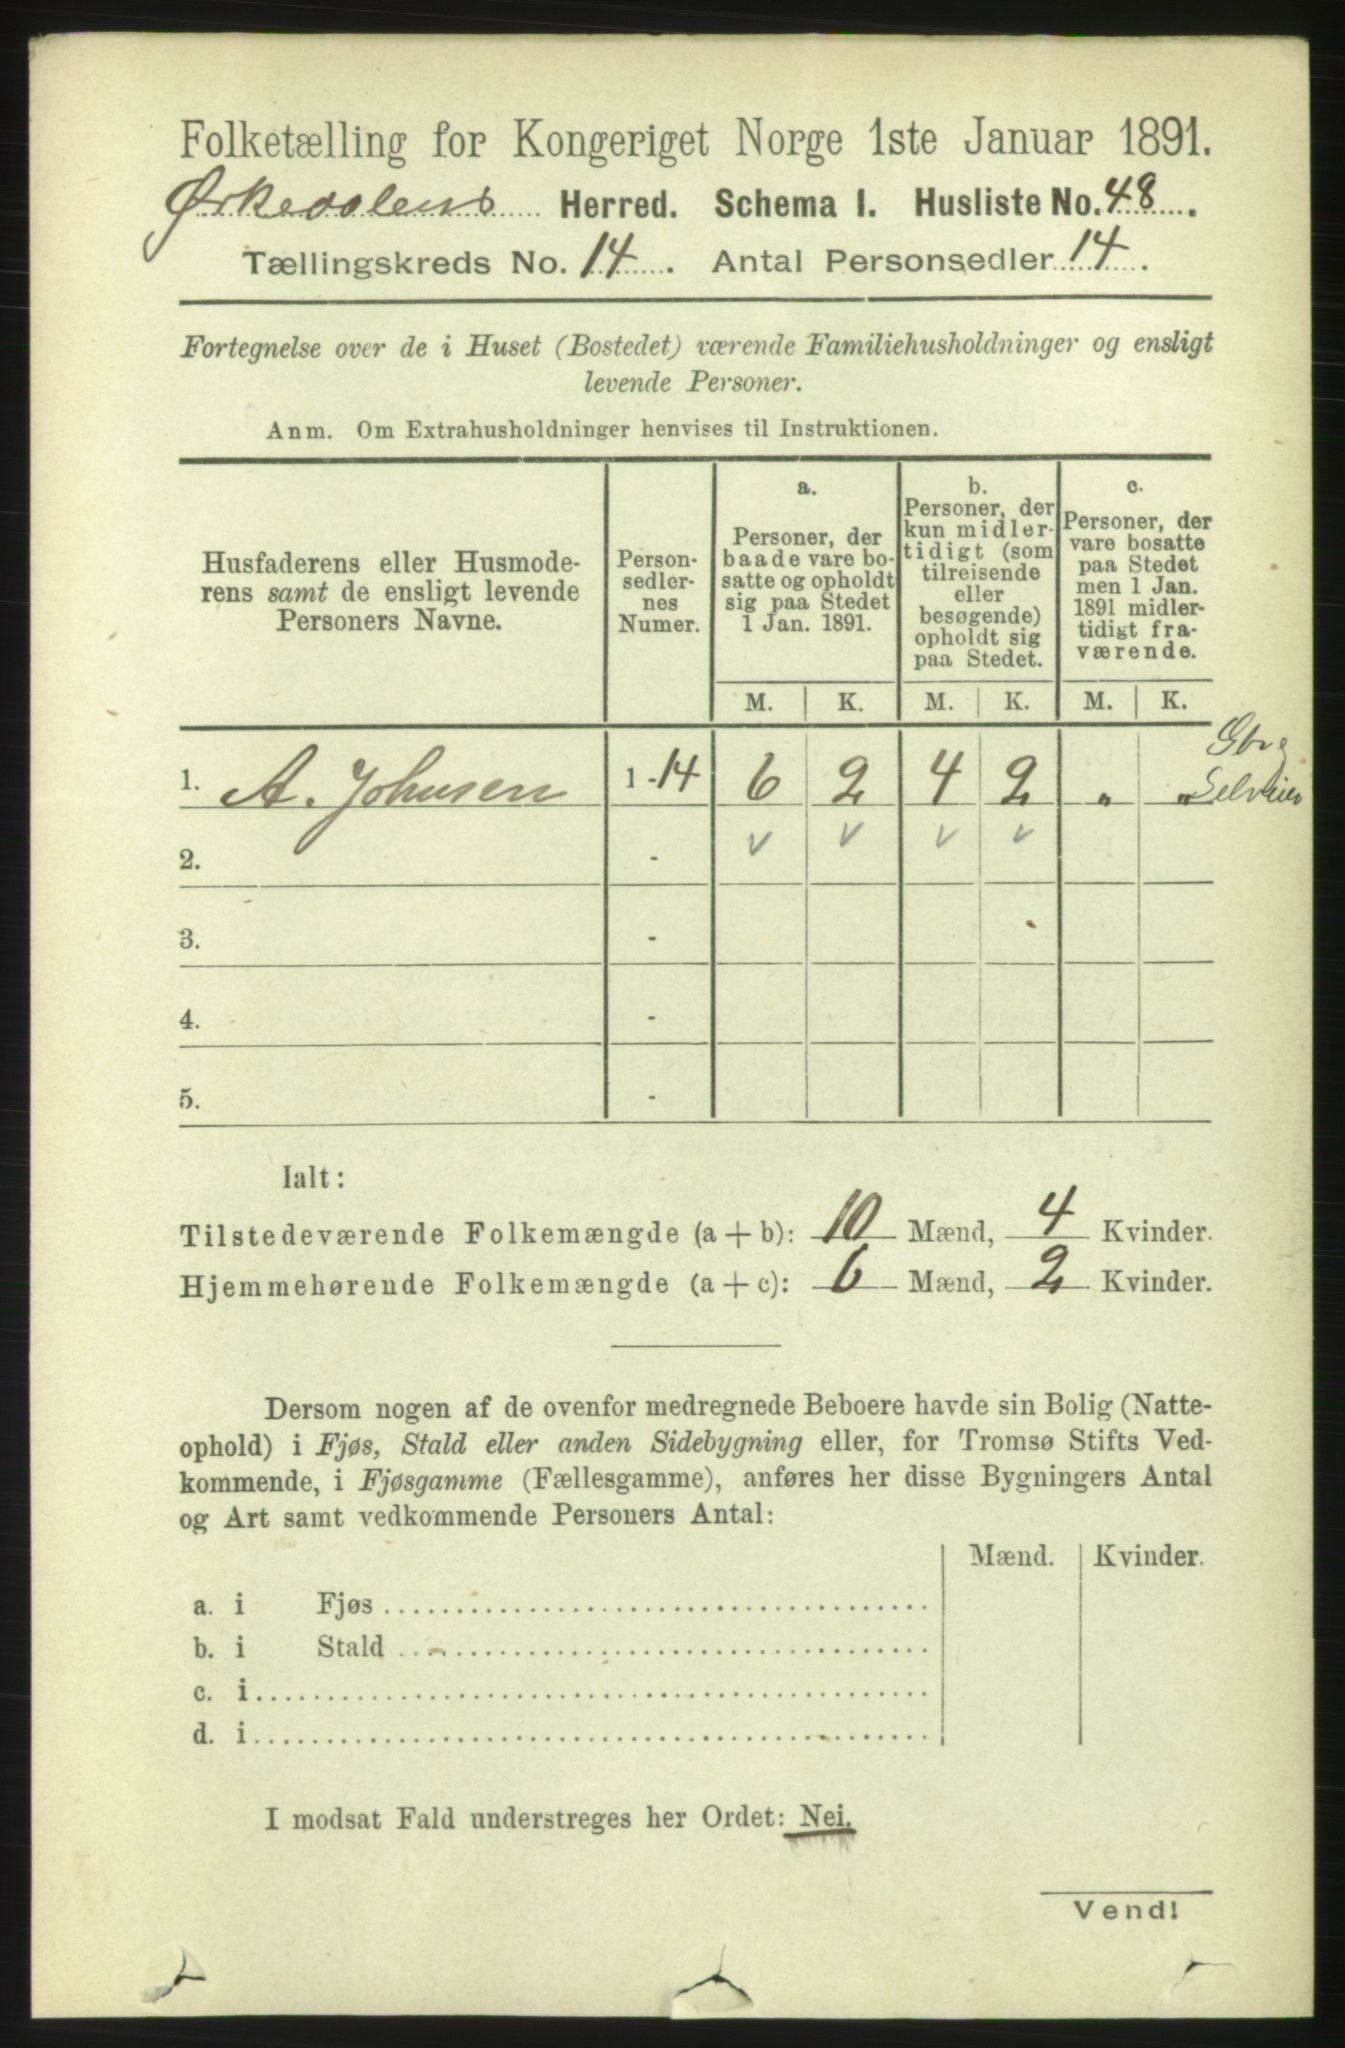 Folketælling for Kongeriget Norge 1ste Januar 1891.
Ørkedalens Herred. Schema I. Husliste No. 48.
Tællingskreds No. 14. Antal Personsedler 14.
Fortegnelse over de i Huset (Bostedet) værende Familiehusholdninger og ensligt
levende Personer.
Anm. Om Extrahusholdninger henvises til Instruktionen.
Husfaderens eller Husmode-
rens samt de ensligt levende
Personers Navne.
Person-
sedler-
nes
Numer.
a.
Personer, der
baade vare bo-
satte og opholdt
sig paa Stedet
1 Jan. 1891.
b.
Personer, der
kun midler-
tidigt (som
tilreisende
eller
besøgende)
opholdt sig
paa Stedet.
c.
Personer, der
vare bosatte
paa Stedet
men 1 Jan.
1891 midler-
tidigt fra-
værende.
M. K. M. K. M. K.
1. A. Johnsen 1-14 6 2 4 2 " "
Gbrg
Selveier
2. - v v v v
3. -
4. -
5. -
Ialt:
Tilstedeværende Folkemængde (a + b): 10 Mænd, 4 Kvinder.
Hjemmehørende Folkemængde (a + c): 6 Mænd, 2 Kvinder.
Dersom nogen af de ovenfor medregnede Beboere havde sin Bolig (Natte-
ophold) i Fjøs, Stald eller anden Sidebygning eller, for Tromsø Stifts Ved-
kommende, i Fjøsgamme (Fællesgamme), anføres her disse Bygningers Antal
og Art samt vedkommende Personers Antal:
Mænd. Kvinder.
a. i Fjøs
b. i Stald
c. i
d. i
I modsat Fald understreges her Ordet: Nei.
Vend!